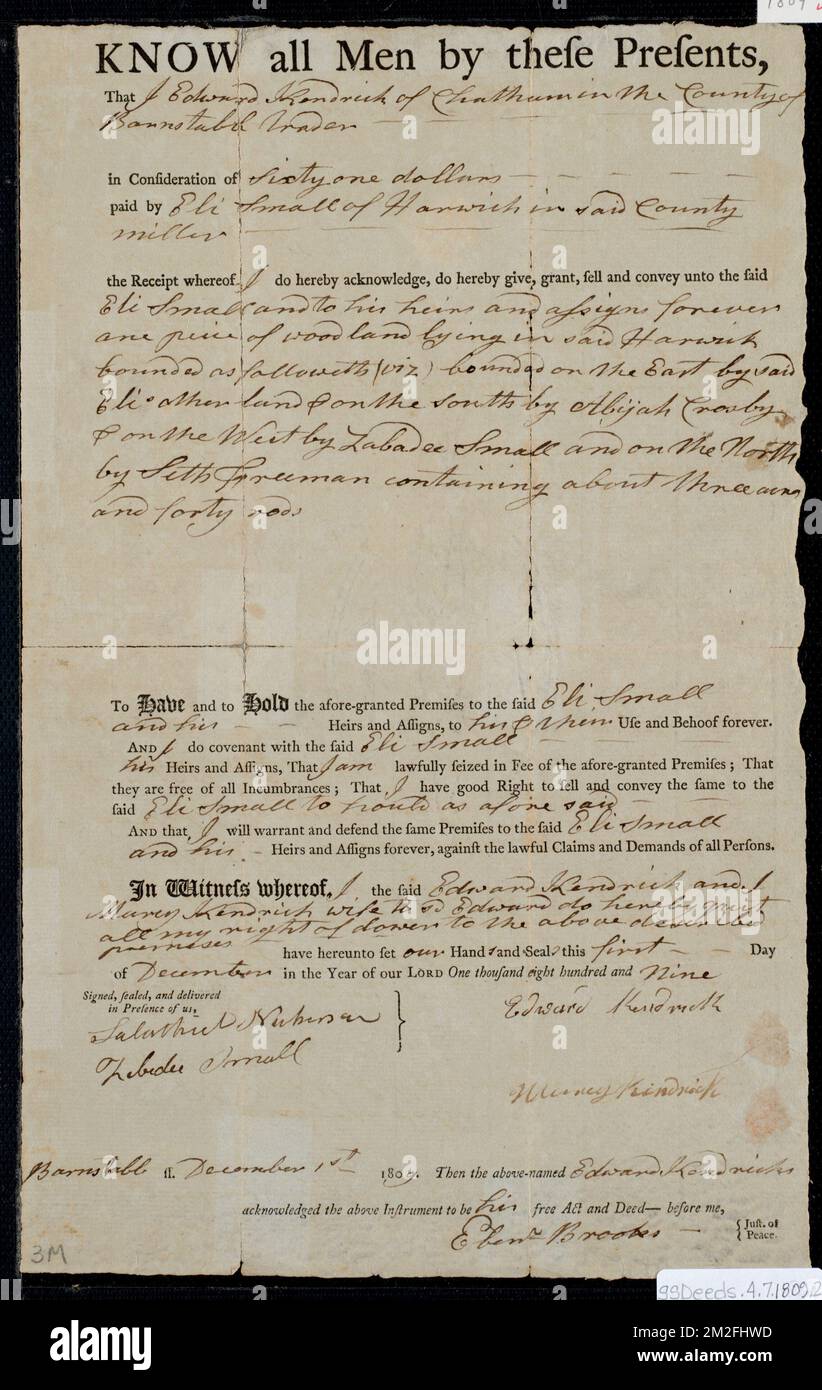 1809
KNOW all Men by theſe Preſents,
That I Edward Kendrick of Chatham in the County of
Barnstabel trader
in Conſideration of sixty one dollars
paid by Eli Small of Harwich in said County
miller
the Receipt whereof I do hereby acknowledge, do hereby give, grant, ſell and convey unto the ſaid
Eli Small and to his heirs and aſsigns forever
one peice of woodland lying in said Harwich
bounded as followeth (viz) bounded on the East by said
Eli's other land & on the south by Abijah Crosby
& on the West by Zabadee Small and on the North
by Seth Freeman containing about three acres
and forty rods
To Have and to Hold the afore-granted Premiſes to the ſaid Eli Small
and his Heirs and Aſſigns, to his & their Uſe and Behoof forever.
AND I do covenant with the ſaid Eli Small
his Heirs and Aſſigns, That I am lawfully ſeized in Fee of the afore-granted Premiſes; That
they are free of all Incumbrances; That I have good Right to ſell and convey the ſame to the
ſaid Eli Small to hould as afore said
AND that I will warrant and defend the ſame Premiſes to the ſaid Eli Small
and his Heirs and Aſſigns forever, againſt the lawful Claims and Demands of all Perſons.
In Witneſs whereof, I the ſaid Edward Kendrick and I
Marcy Kendrick wife to sd Edward do hereby quit
all my right of dower to the above described
premises have hereunto ſet our Hands and Seals this first Day
of December in the Year of our LORD One thouſand eight hundred and Nine
Signed, ſealed, and delivered
in Preſence of us,
Salathiel Nickerson
Zebedee Small
Edward Kendrick
Marcy Kindrick
Barnstable ſſ. December 1st 1809. Then the above-named Edward Kendricks
acknowledged the above Inſtrument to be his free Act and Deed— before me,
Ebenr Brooks
Juſt. of
Peace.
3M
99Deeds.4.7.1809.2
alamy
Image ID: 2M2FHWD
www.alamy.com